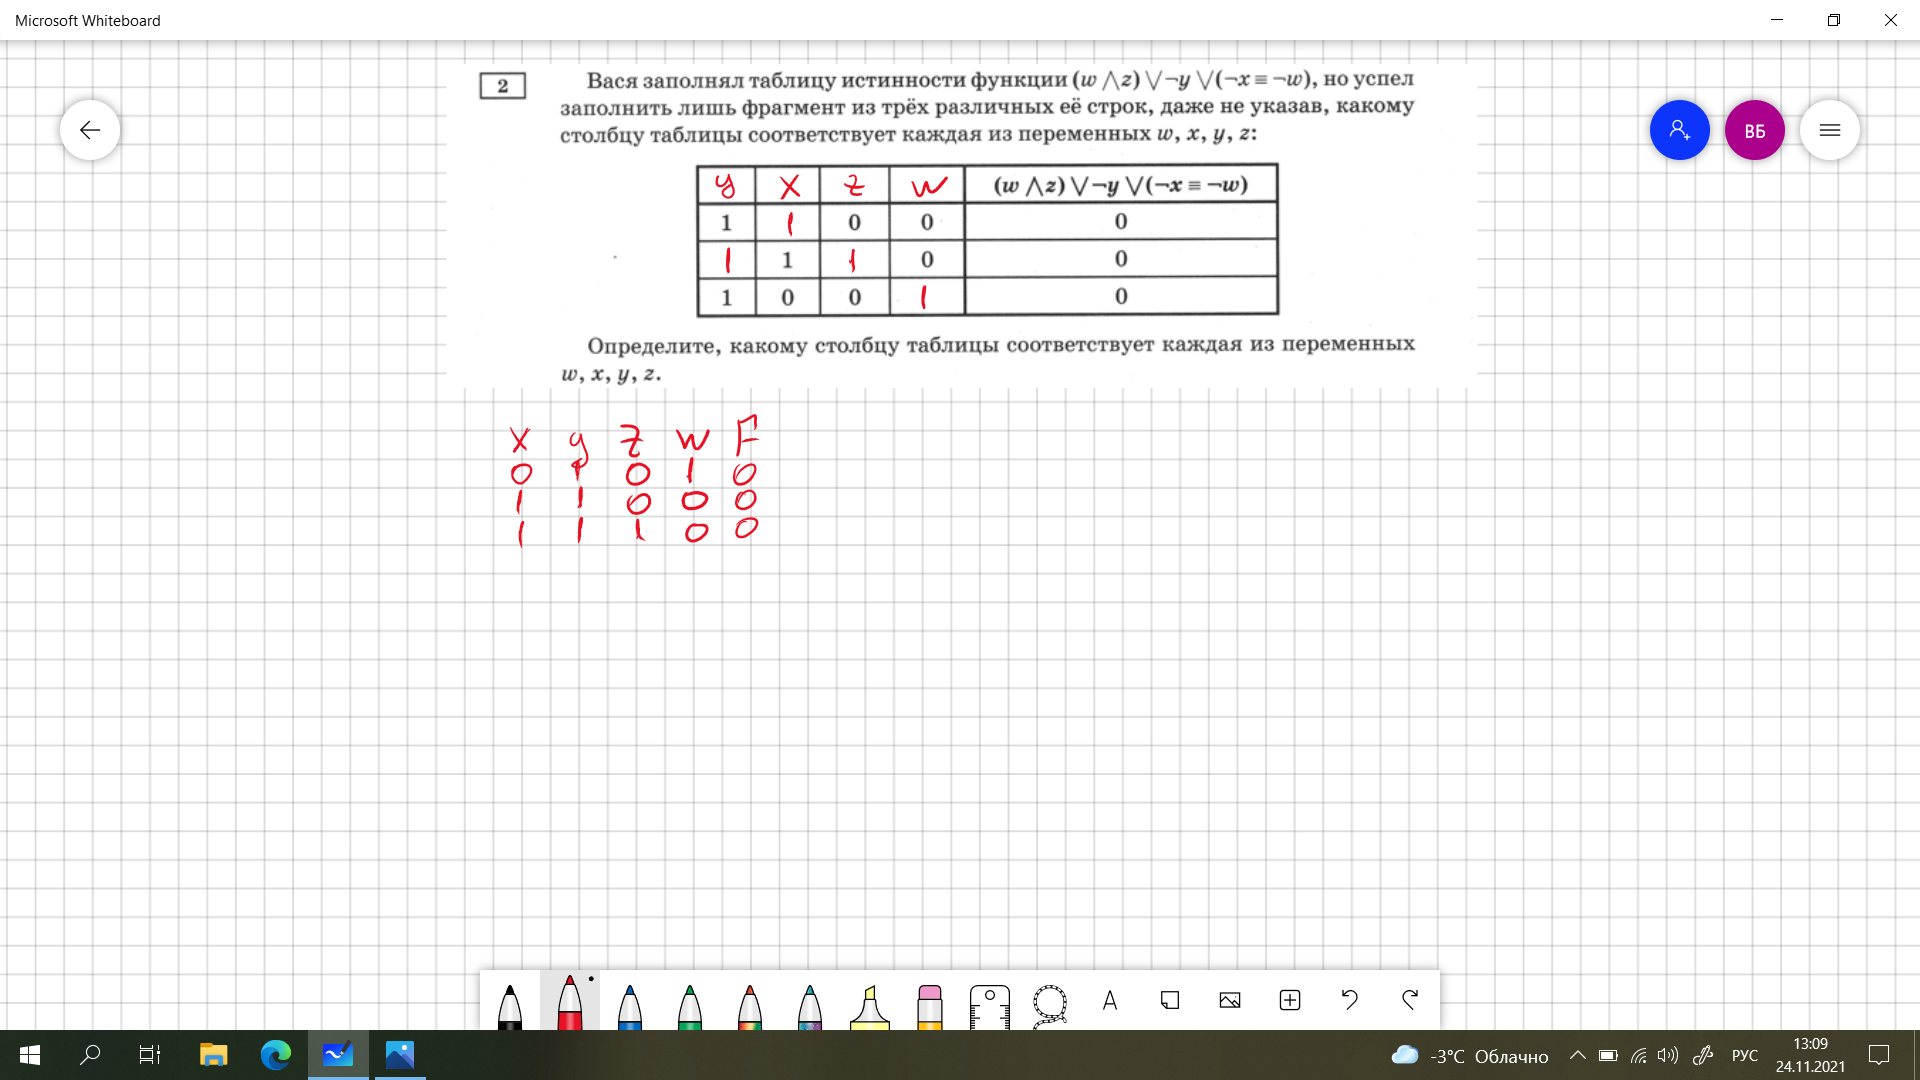 Microsoft Whiteboard
2 Вася заполнял таблицу истинности функции (w ∧ z) ∨ ¬y ∨ (¬x ≡ ¬w), но успел
заполнить лишь фрагмент из трёх различных её строк, даже не указав, какому
столбцу таблицы соответствует каждая из переменных w, x, y, z:
ВБ
y x z w (w ∧ z) ∨ ¬y ∨ (¬x ≡ ¬w)
1 1 0 0 0
1 1 1 0 0
1 0 0 1 0
Определите, какому столбцу таблицы соответствует каждая из переменных
w, x, y, z.
x y z w F
0 1 0 1 0
1 1 0 0 0
1 1 1 0 0
A
-3°C Облачно
РУС
13:09
24.11.2021